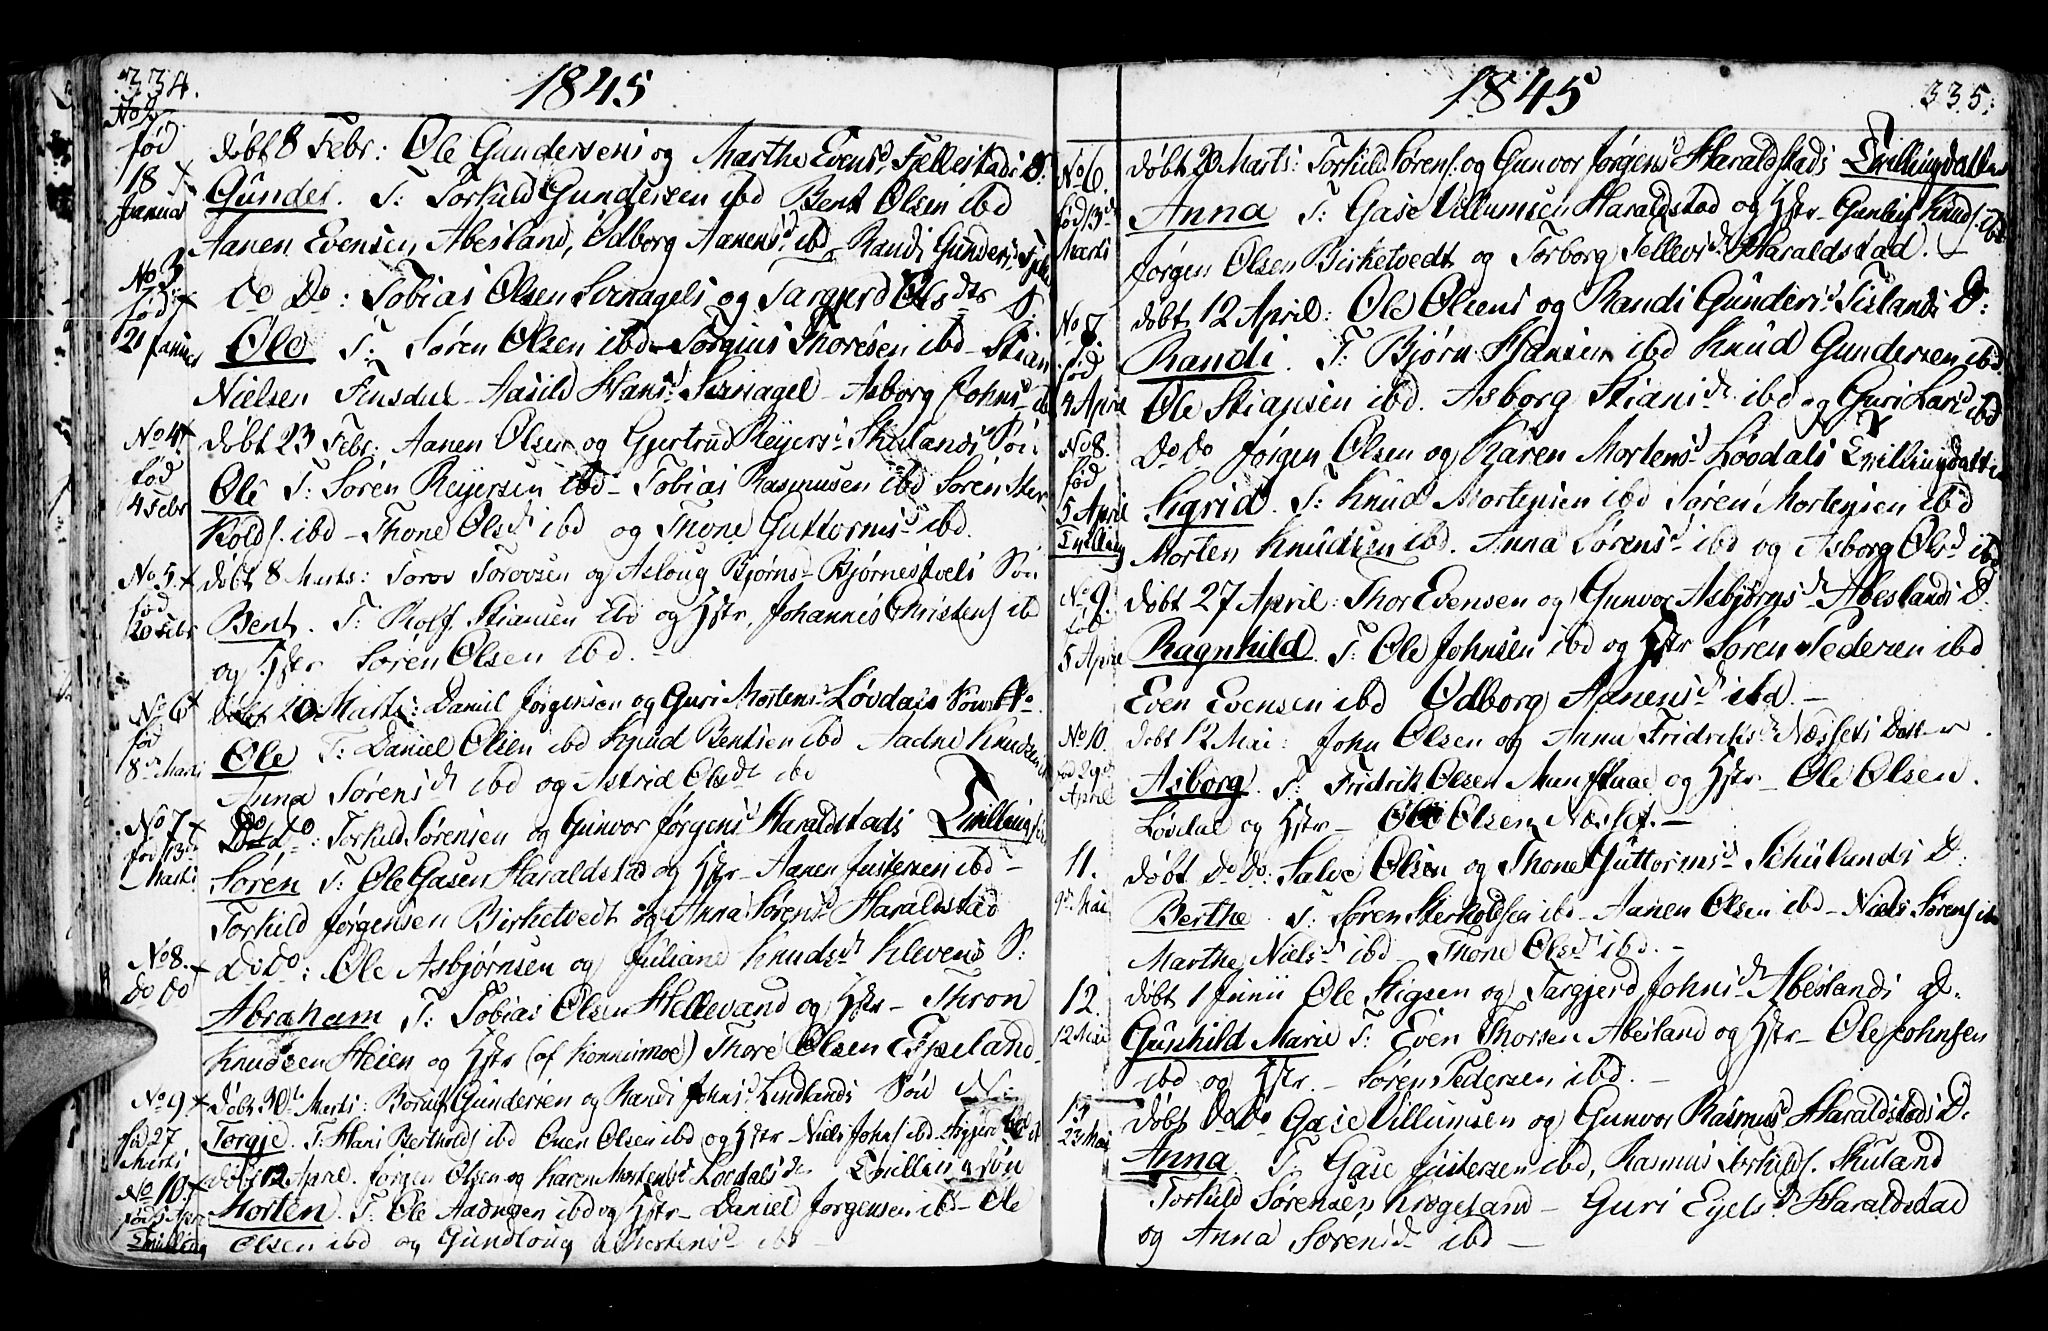 334.
1845
No 2
fød
18
Januar
døbt 8 Febr: Ole Gundersens og Marthe Evensd. Fjellestads S.
Gunder. T: Torkild Gundersen ibd Bent Olsen ibd
Aanen Evensen Abesland, Odborg Aanensd. ibd, Randi Gundersd.
No 3
fød
21 Januar
Do Do: Tobias Olsen Svinagels og Targjerd Olsdtr S.
Ole T: Søren Olsen ibd Torgius Thoresen ibd - Stian
Nielsen Finsdal - Aasild Hansd. Svinagel - Asborg Johnsd. ibd
No 4
fød
4 Febr
døbt 23 Febr: Aanen Olsen og Gjertrud Reyersd. Skulands Søn
Ole T: Søren Reyersen ibd - Tobias Rasmusen ibd Søren Ster-
kolds. ibd - Thone Olsdt ibd og Thone Guttormsd. ibd.
No 5
fød
20 Febr
døbt 8 Marts: Torov Torovsen og Asloug Bjørns- Bjørnestvels Søn
Bent. T: Rolf Stiansen ibd og Hstr, Johannes Christens. ibd
og Hstr Søren Olsen ibd. -
No 6
fød
8de Marts
døbt 20 Marts: Daniel Jørgensen og Guri Mortens- Løvdals Søn
Ole T: Daniel Olsen ibd Knud Bentsen ibd Aadne Knudsen
Anna Sørensdt ibd og Astrid Olsdt ibd
No 7
fød 13de
Marts
Do Do: Torkild Sørensen og Gunvor Jørgensd. Haraldstads Tvilling
Søren T: Ole Gasen Haraldstad og Hstr - Aanen Justersen ibd -
Torkild Jørgensen Birketvedt og Anna Sørensd. Haraldstad
No 8.
Do Do
Do Do: Ole Asbjørnsen og Juliane Knudsdt Klevens S:
Abraham T: Tobias Olsen Hellevand og Hstr - Thron
Knudsen Heien og Hstr (af Konnismoe) Thore Olsen Espeland.
No 9
fød 27
Marts
døbt 30te Marts: Gundersen og Randi Johnsd. Lindlands Søn
Torgje. T: Hans Bertholds. ibd Oven Olsen ibd og Hstr - Niels Johns. ibd
No 10
døbt 12 April. Jørgen Olsen og Karen Mortensd. Løvdals Tvilling søn
Morten. T: Ole Aadnesen ibd og Hstr - Daniel Jørgensen ibd - Ole
Tvilling
Olsen ibd og Gundloug Mortensd. ibd -
1845
335.
No 6.
fød 13de
Marts
døbt 20 Marts: Torkild Sørens. og Gunvor Jørgensd. Haraldstads Tvillingdatter
Anna T: Gase Villumsen Haraldstad og Hstr - Gunleif Knuds. ibd
Jørgen Olsen Birketvedt og Torborg Tellevsd. Haraldstad. -
No 7
fød
4 April
døbt 12 April: Ole Olsens og Randi Gundersd. Tislands D:
Randi. T: Bjørn Hansen ibd Knud Gundersen ibd
Ole Stiansen ibd. Asborg Stiansdt ibd og Guri Larsd. ibd
No 8.
fød
5 April
Tvilling
Do Do Jørgen Olsen og Karen Mortensd. Løvdals Tvillingdatter
Sigrid. T: Knud Mortensen ibd Søren Mortensen ibd
Morten Knudsen ibd. Anna Sørensd. ibd og Asborg Olsd. ibd
No 9.
fød
5 April
døbt 27 April: Thor Evensen og Gunvor Asbjørnsdt Abeslands D.
Ragnhild. T: Ole Johnsen ibd og Hstr Søren Pedersen ibd
Even Evensen ibd Odborg Aanensdt ibd. -
No 10.
April
døbt 12 Mai: John Olsen og Anna Fridriksdt Næssets Datter.
Asborg. T: Fridrik Olsen og Hstr - Ole Olsen.
Løvdal og Hstr - Ole Olsen Næsset. -
11.
9de Mai
døbt Do Do: Salve Olsen og Thone Guttormsd. Schulands D:
Berthe T: Søren Sterkoldsen ibd - Aanen Olsen ibd - Niels Sørens. ibd
Marthe Nielsdt ibd - Thone Olsdt ibd. -
12.
12 Mai
døbt 1 Junii Ole Stigsen og Targjerd Johnsdt Abeslands D.
Gunhild Marie T: Even Thorsen Abesland og Hstr - Ole Johnsen
ibd og Hstr. - Søren Pedersen ibd. -
13
23 Mai
døbt Do Do Gase Villumsen og Gunvor Rasmusd. Haraldstads D.
Anna. T: Gase Justersen ibd, Rasmus Torkilds. Skuland
Torkild Sørensen Krogeland - Guri Ejelsdt Haraldstad
og Anna Sørensdt ibd -